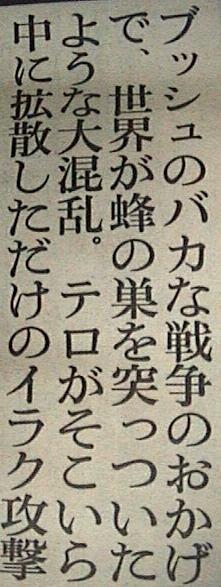 ブッシュのバカな戦争のおかげ
で、世界が蜂の巣を突っついた
ような大混乱。テロがそこいら
中に拡散しただけのイラク攻撃